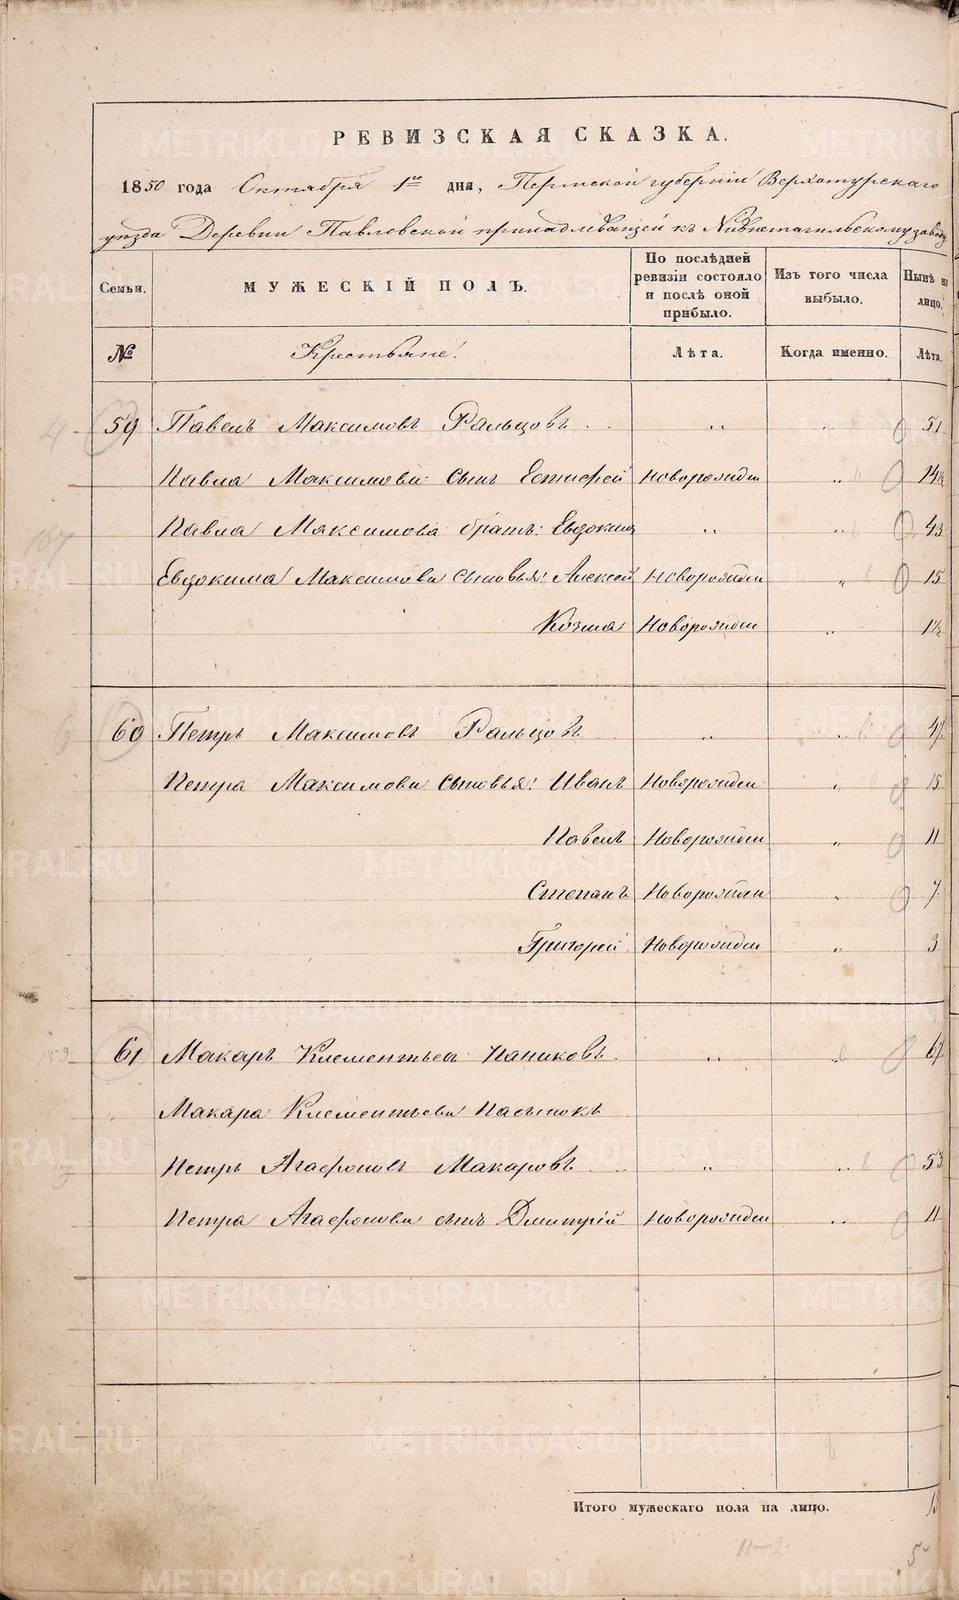 РЕВИЗСКАЯ СКАЗКА.
1850 года Октября 1го дня, Пермской губернiи Верхотурскаго
уѣзда Деревни Павловской принадлежащей къ Нижнетагильскому заводу
Семьи. МУЖЕСКIЙ ПОЛЪ. По послѣдней ревизiи состояло и послѣ оной прибыло. Изъ того числа выбыло. Нынѣ на лицо.
№ Крестьяне: Лѣта. Когда именно. Лѣта.
59 Павелъ Максимовъ Ральцовъ . . ,, ,, 51
Павла Максимова сынъ Естифей Новорожден ,, 14½
Павла Максимова братъ: Евдокимъ ,, ,, 43
Евдокима Максимова сыновья: Алексей Новорожден ,, 15
Козма Новорожден ,, 1½
60 Петръ Максимовъ Ральцовъ ,, ,, 47
Петра Максимова сыновья: Иванъ Новорожден ,, 15
Павелъ Новорожден ,, 11
Степанъ Новорожден ,, 7
Григорей Новорожден ,, 3
61 Макаръ Клементьевъ Паниковъ . ,, ,, 67
Макара Клементьева пасынокъ
Петръ Агафоновъ Макаровъ . . ,, ,, 53
Петра Агафонова сынъ Дмитрiй Новорожден ,, 11
Итого мужескаго пола на лицо.
11-2
5
METRIKI.GASO-URAL.RU